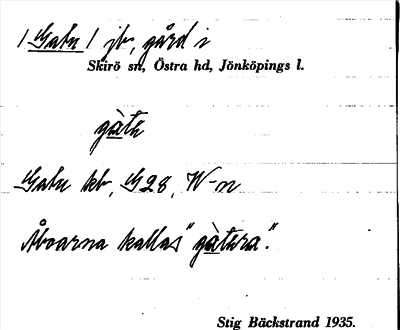 /Gatu/ jb, gård i
Skirö sn, Östra hd, Jönköpings l.
gàtu
Gatu kb, G28, N-n
Åboarna kallas "gàtura."
Stig Bäckstrand 1935.